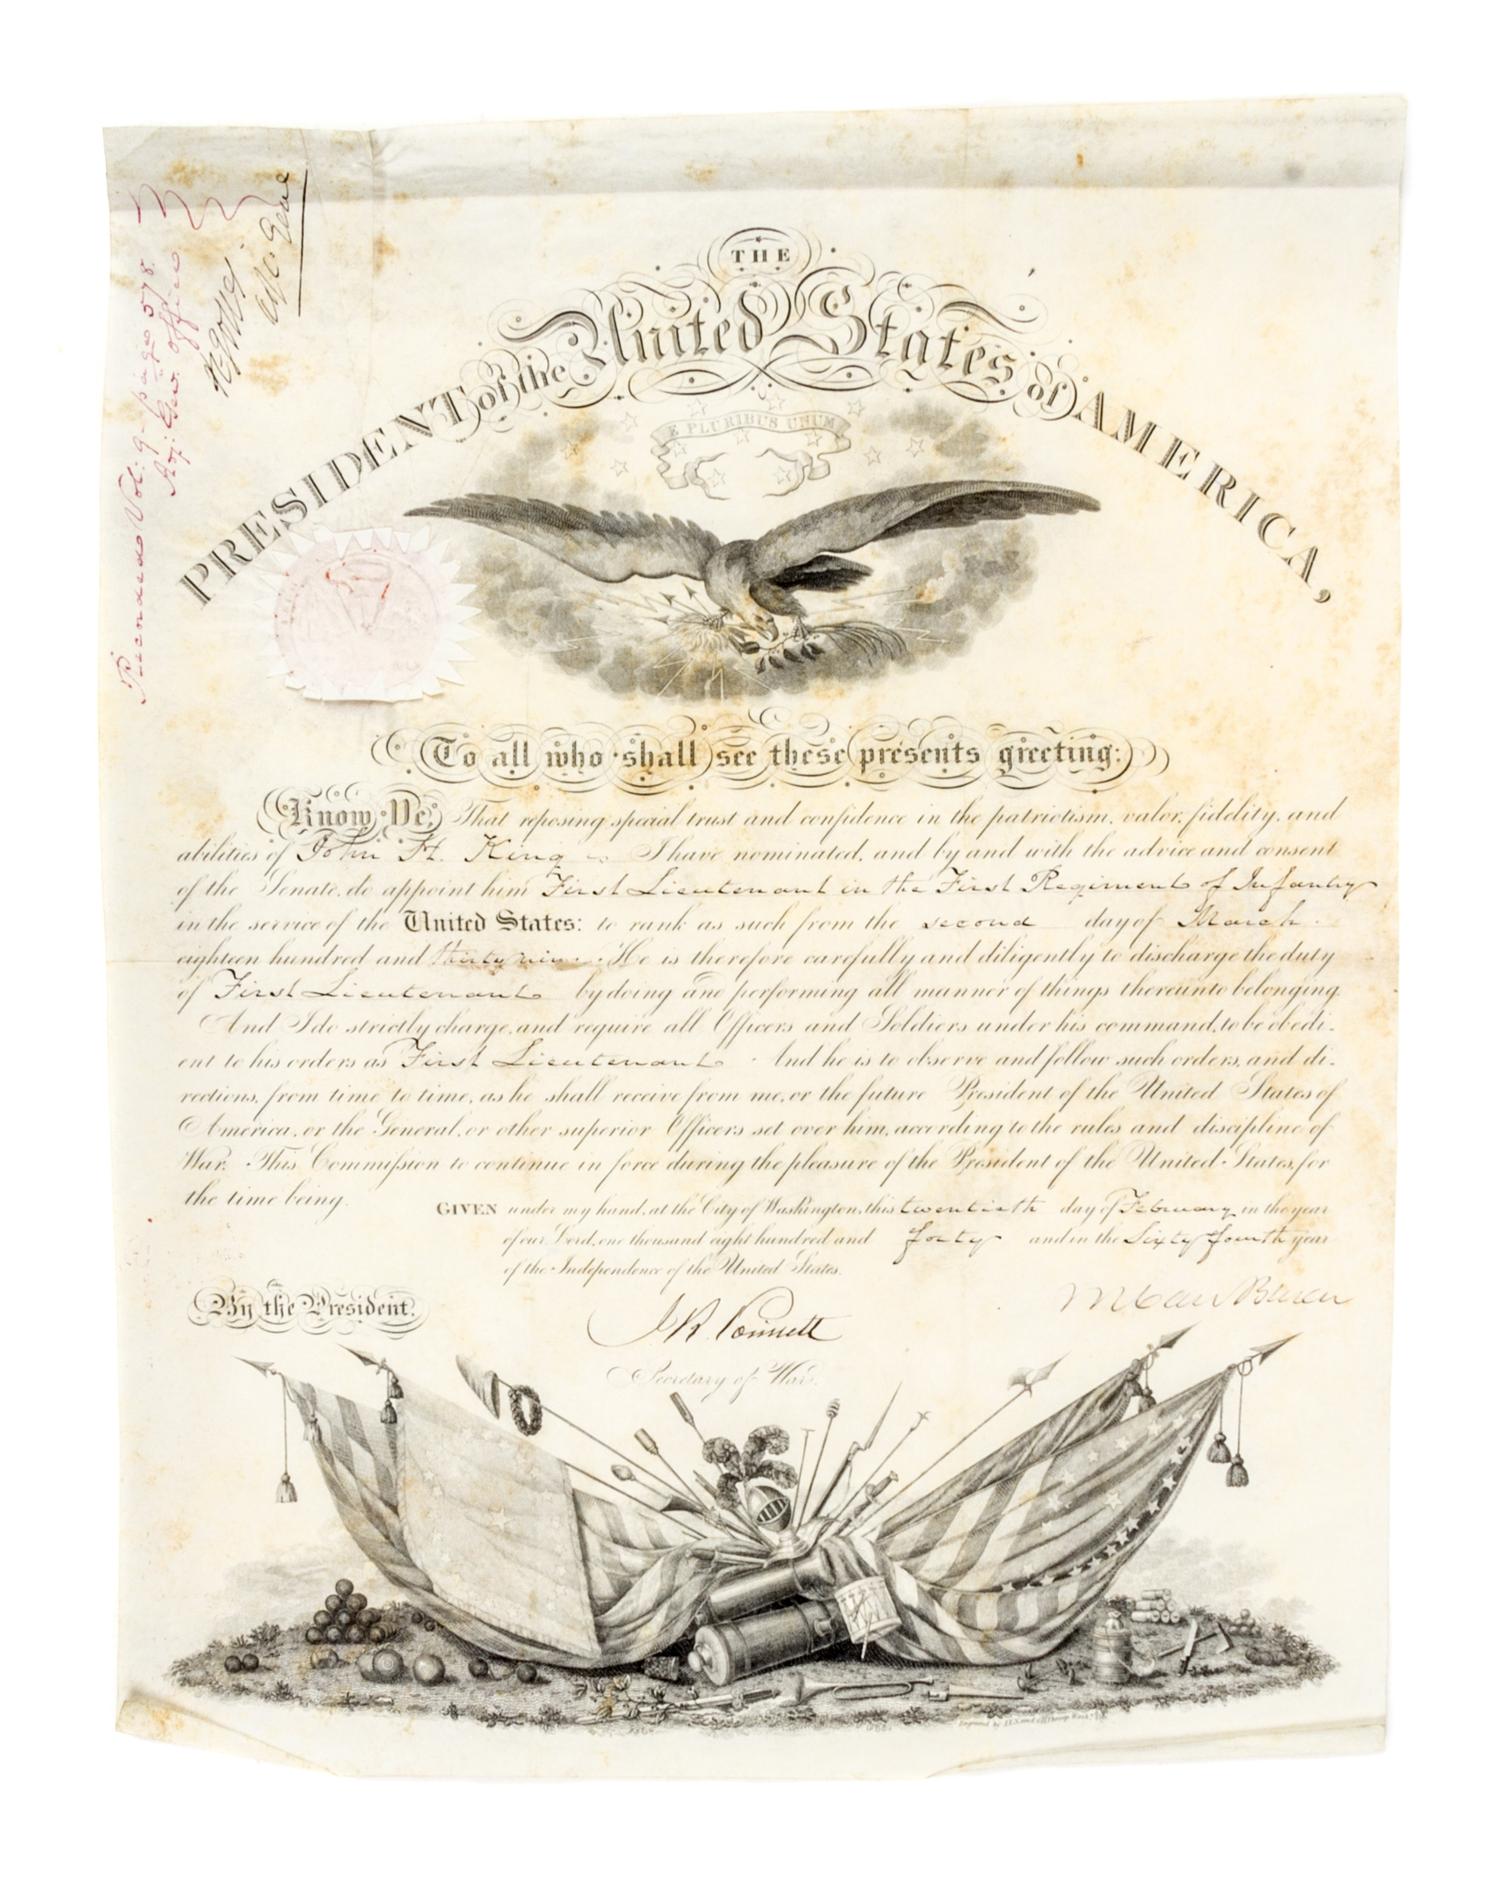 THE
PRESIDENT of the United States of AMERICA,
E PLURIBUS UNUM
Recorded Vol: 9 page 578.
Adj: Gen. Office
R. Jones
Adj. Genl
To all who shall see these presents greeting:
Know Ye, That reposing special trust and confidence in the patriotism, valor, fidelity, and
abilities of John H. King I have nominated, and by and with the advice and consent
of the Senate, do appoint him First Lieutenant in the First Regiment of Infantry
in the service of the United States: to rank as such from the second day of March
eighteen hundred and thirty nine. He is therefore carefully and diligently to discharge the duty
of First Lieutenant by doing and performing all manner of things thereunto belonging.
And I do strictly charge, and require all Officers and Soldiers under his command, to be obedi-
ent to his orders as First Lieutenant And he is to observe and follow such orders, and di-
rections, from time to time, as he shall receive from me, or the future President of the United States of
America, or the General, or other superior Officers set over him, according to the rules and discipline of
War. This Commission to continue in force during the pleasure of the President of the United States, for
the time being.
GIVEN under my hand, at the City of Washington, this twentieth day of February in the year
of our Lord, one thousand eight hundred and forty and in the Sixty fourth year
of the Independence of the United States.
By the President.
M Van Buren
J. R. Poinsett
Secretary of War.